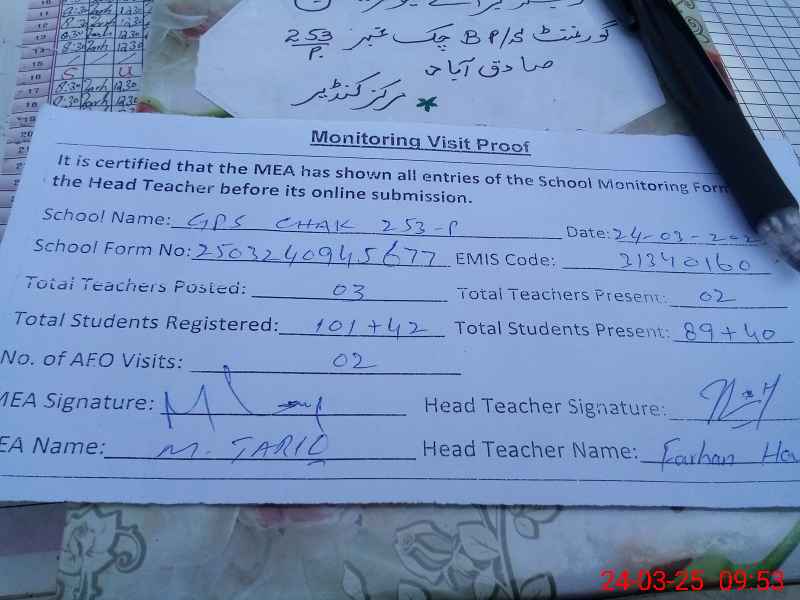 گورنمنٹ B P/S چک نمبر 253/P
صادق آباد
مرکز کنڈیر
Monitoring Visit Proof
It is certified that the MEA has shown all entries of the School Monitoring Form
the Head Teacher before its online submission.
School Name: GPS CHAK 253-P Date: 24-03-2
School Form No: 250324094567 7 EMIS Code: 31340160
Total Teachers Posted: 03 Total Teachers Present: 02
Total Students Registered: 101+42 Total Students Present: 89+40
No. of AEO Visits: 02
MEA Signature: Head Teacher Signature:
EA Name: M. TARIQ Head Teacher Name: Farhan Ha
24-03-25 09:53